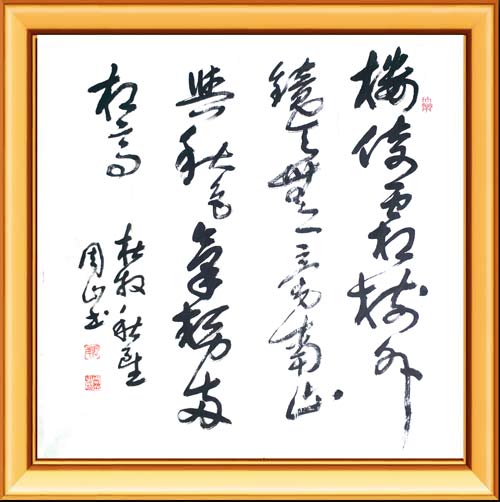 樓倚霜樹外
鏡天無一毫南山
與秋色氣勢兩
相高
杜牧秋望
周山书